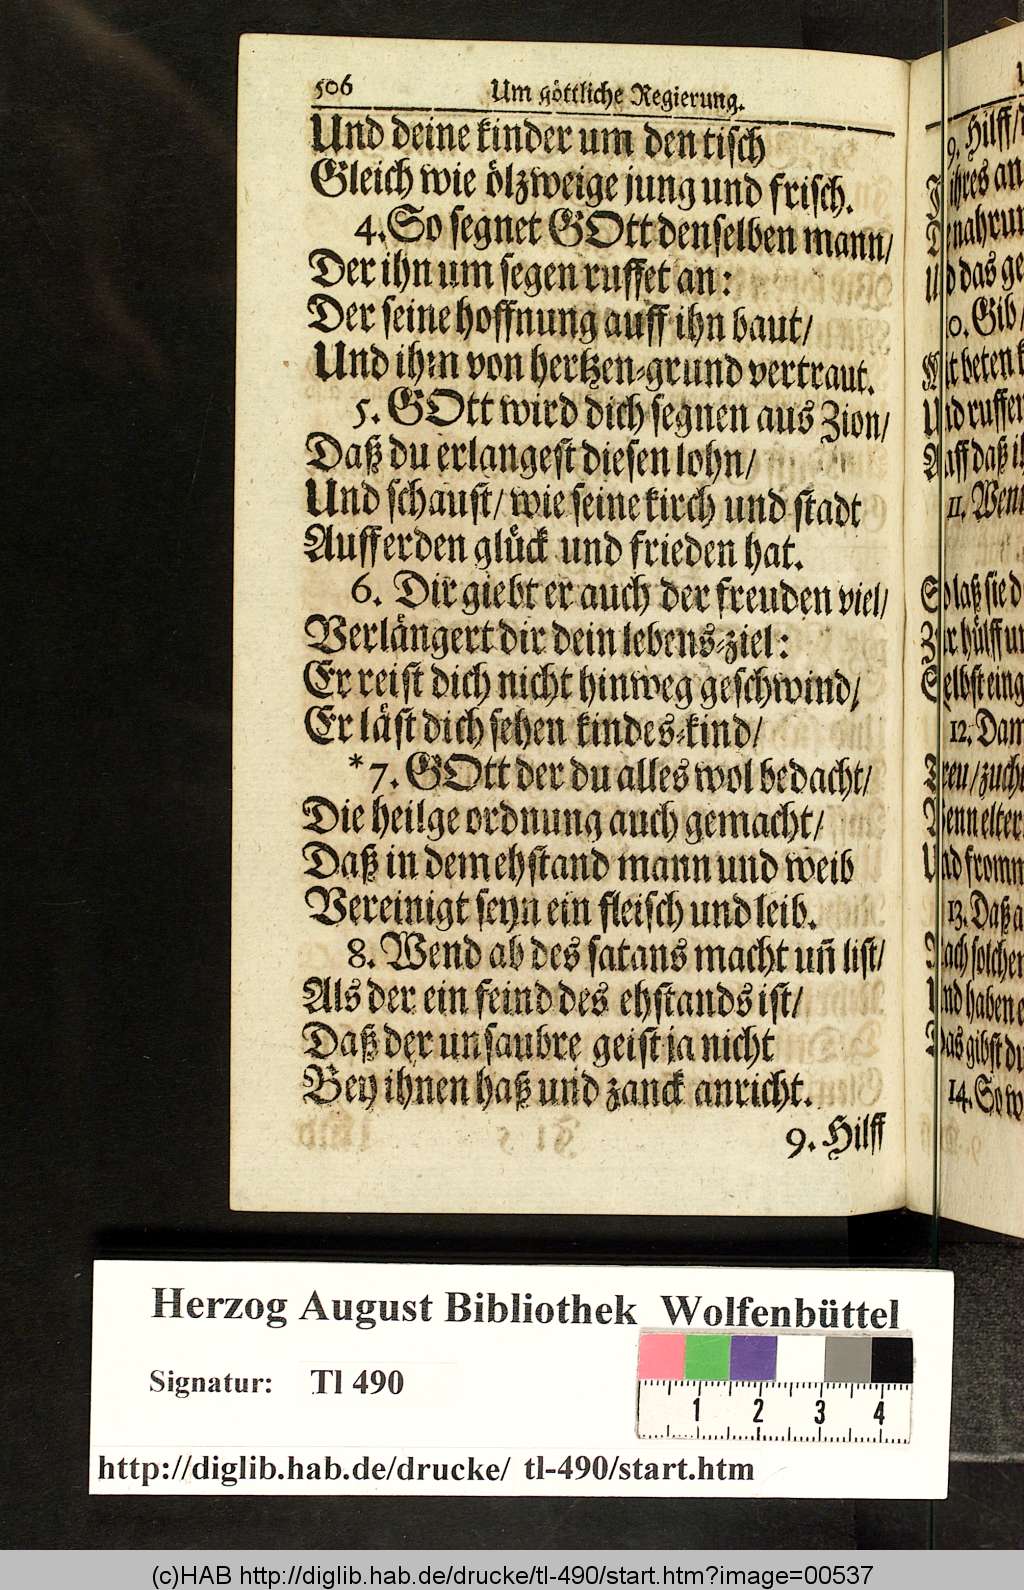 506 Um göttliche Regierung.
Und deine kinder um den tisch
Gleich wie ölzweige jung und frisch.
4. So segnet GOtt denselben mann/
Der ihn um segen ruffet an:
Der seine hoffnung auff ihn baut/
Und ihm von hertzen-grund vertraut.
5. GOtt wird dich segnen aus Zion/
Daß du erlangest diesen lohn/
Und schaust/ wie seine kirch und stadt
Auff erden glück und frieden hat.
6. Dir giebt er auch der freuden viel/
Verlängert dir dein lebens-ziel:
Er reist dich nicht hinweg geschwind/
Er läst dich sehen kindes-kind/
*7. GOtt der du alles wol bedacht/
Die heilge ordnung auch gemacht/
Daß in dem ehstand mann und weib
Vereinigt seyn ein fleisch und leib.
8. Wend ab des satans macht uñ list/
Als der ein feind des ehstands ist/
Daß der unsaubre geist ja nicht
Bey ihnen haß und zanck anricht.
9. Hilff
9. Hilff/
10. Gib/
11.
12.
13. Daß
14. So
Herzog August Bibliothek Wolfenbüttel
Signatur: Tl 490
1 2 3 4
http://diglib.hab.de/drucke/ tl-490/start.htm
(c)HAB http://diglib.hab.de/drucke/tl-490/start.htm?image=00537